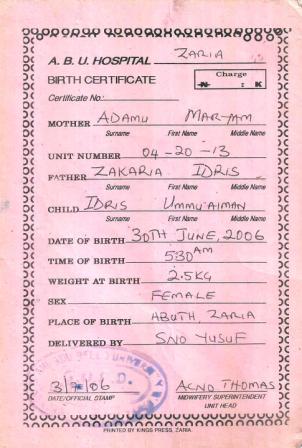 A. B. U. HOSPITAL ZARIA
BIRTH CERTIFICATE
Charge
N : K
Certificate No:
MOTHER ADAMU MARYAM
Surname First Name Middle Name
UNIT NUMBER 04-20-13
FATHER ZAKARIA IDRIS
Surname First Name Middle Name
CHILD IDRIS UMMU'AIMAN
Surname First Name Middle Name
DATE OF BIRTH 30TH JUNE, 2006
TIME OF BIRTH 530AM
WEIGHT AT BIRTH 2.5KG
SEX FEMALE
PLACE OF BIRTH ABUTH, ZARIA
DELIVERED BY SNO YUSUF
3/7/06 ACNO THOMAS
DATE/OFFICIAL STAMP MIDWIFERY SUPERINTENDENT
UNIT HEAD
PRINTED BY KINGS PRESS, ZARIA